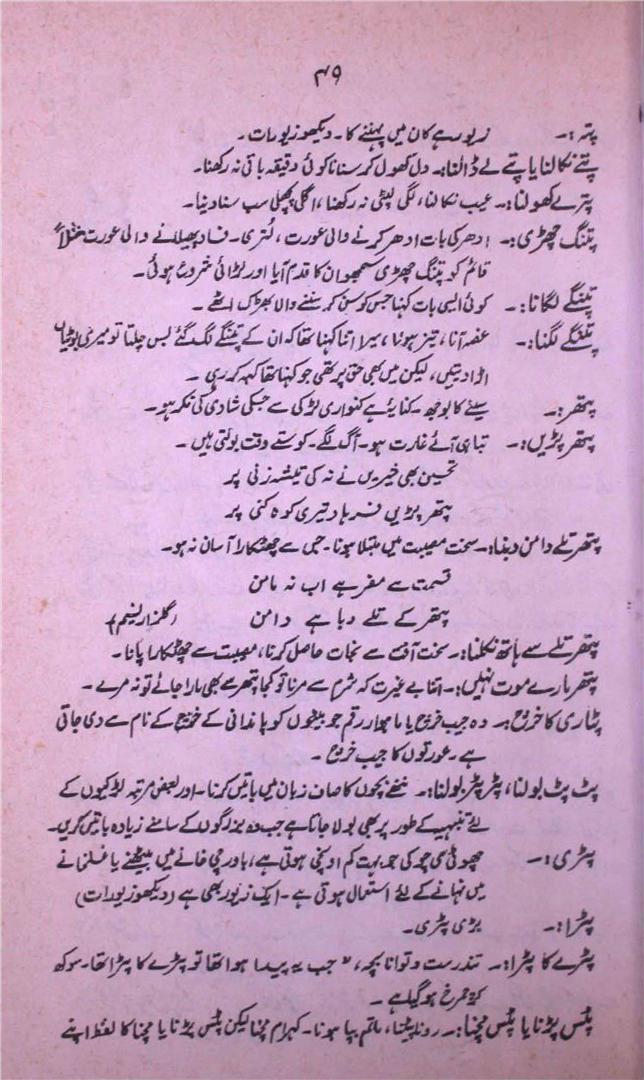 ۴۹
پتہ :۔ زیور ہے کان میں پہننے کا۔ دیکھو زیورات۔
پتے نکالنا یا پتے لے ڈالنا:۔ دل کھول کر سنانا کوئی دقیقہ باقی نہ رکھنا۔
پترے کھولنا:۔ عیب نکالنا، لگی لپٹی نہ رکھنا، اگلی پچھلی سب سنا دینا۔
پتنگ چھڑی:۔ ادھر کی بات ادھر کرنے والی عورت، لُتری۔ فساد پھیلانے والی عورت مثلاً
قائم کو پتنگ چھڑی سمجھو ان کا قدم آیا اور لڑائی شروع ہوئی۔
پتنگے لگانا:۔ کوئی ایسی بات کہنا جس کو سن کر سننے والا بھڑک اٹھے۔
پتنگے لگنا:۔ غصہ آنا، تیز ہونا، میرا اتنا کہنا تھا کہ ان کے پتنگے لگ گئے بس چلتا تو میری بوٹیاں
اڑا دیتیں، لیکن میں بھی حق پر تھی جو کہنا تھا کہہ کر رہی۔
پتھر:۔ سینے کا بوجھ۔ کنایۃً ہے کنواری لڑکی سے جسکی شادی کی فکر ہو۔
پتھر پڑیں:۔ تباہی آئے غارت ہو۔ آگ لگے۔ کوستے وقت بولتی ہیں۔
تحسین بھی خیریں نے نہ کی تیشہ زنی پر
پتھر پڑیں فرہاد تیری کوہ کنی پر
پتھر تلے دامن دبنا:۔ سخت مصیبت میں مبتلا ہونا۔ جس سے چھٹکارا آسان نہ ہو۔
قسمت سے مفر ہے اب نہ مامن
پتھر کے تلے دبا ہے دامن (گلزار نسیم)
پتھر تلے سے ہاتھ نکلنا:۔ سخت آفت سے نجات حاصل کرنا، مصیبت سے چھٹکارا پانا۔
پتھر مارے موت نہیں:۔ اتنا بے غیرت کہ شرم سے مرنا تو کجا پتھر سے بھی مارا جائے تو نہ مرے۔
پٹاری کا خرچ:۔ وہ جیب خرچ یا ماہوار رقم جو بیٹیوں کو پاندانی کے خرچ کے نام سے دی جاتی
ہے۔ عورتوں کا جیب خرچ۔
پٹ پٹ بولنا، پٹر پٹر بولنا:۔ ننھے بچوں کا صاف زبان میں باتیں کرنا۔ اور بعض مرتبہ لڑکیوں کے
لئے تنبیہہ کے طور پر بھی بولا جاتا ہے جب وہ بزرگوں کے سامنے زیادہ باتیں کریں۔
پٹری:۔ چھوٹی سی چوکی جو بہت کم اونچی ہوتی ہے، باورچی خانے میں بیٹھنے یا غسلخانے
میں نہانے کے لئے استعمال ہوتی ہے۔ ایک زیور بھی ہے (دیکھو زیورات)
پٹرا:۔ بڑی پٹری۔
پٹرے کا پٹرا:۔ تندرست و توانا بچہ، "جب یہ پیدا ہوا تھا تو پٹرے کا پٹرا تھا۔ سوکھ
کر چرخ ہو گیا ہے۔
پٹس پڑنا یا پٹس مچنا:۔ رونا پیٹنا، ماتم بپا ہونا۔ کہرام مچنا لیکن پٹس پڑنا یا مچنا کا لفظ اپنے